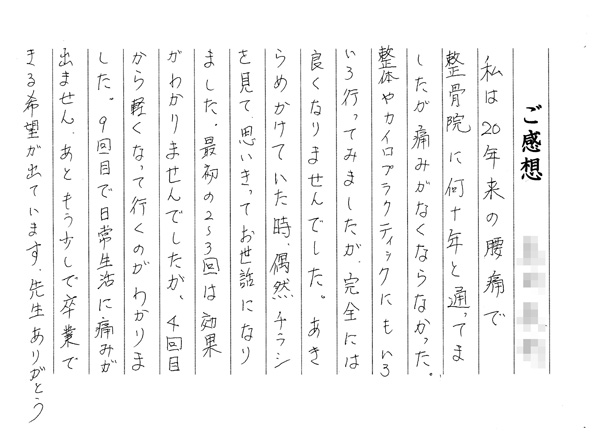 ご感想
私は20年来の腰痛で
整骨院に何十年と通ってま
したが痛みがなくならなかった。
整体やカイロプラクティックにもいろ
いろ行ってみましたが、完全には
良くなりませんでした。あき
らめかけていた時、偶然チラシ
を見て、思いきってお世話になり
ました。最初の2~3回は効果
がわかりませんでしたが、4回目
から軽くなって行くのがわかりま
した。9回目で日常生活に痛みが
出ません、あともう少しで卒業で
きる希望が出ています、先生ありがとう